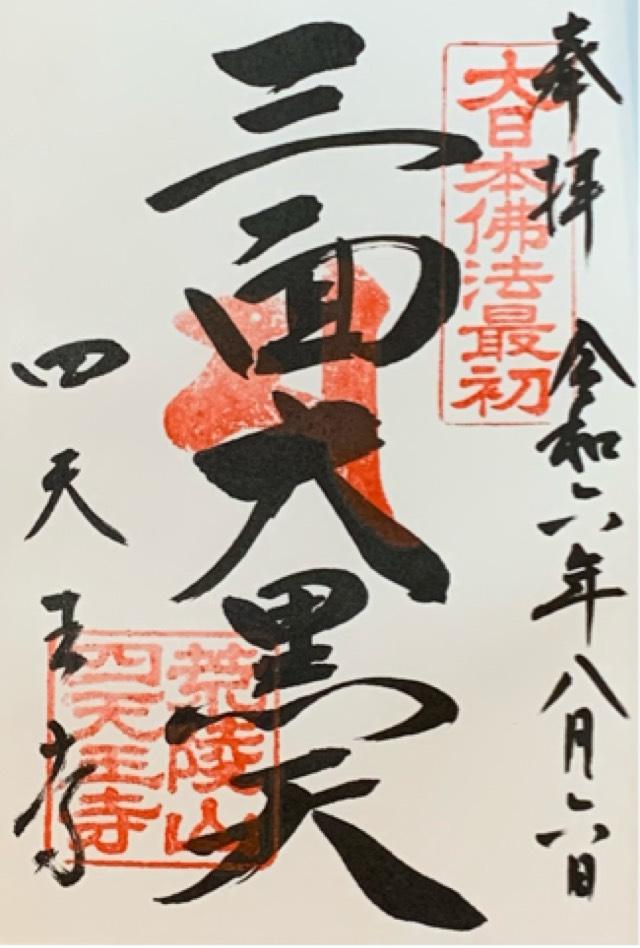 奉拝 令和六年八月六日
大日本佛法最初
三面大黑天
四天王寺
荒陵山
四天王寺